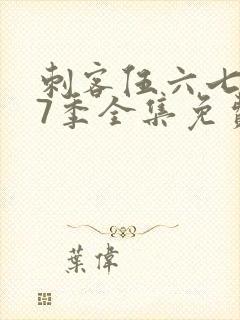 刺客伍六七
7季全集免费
葉偉